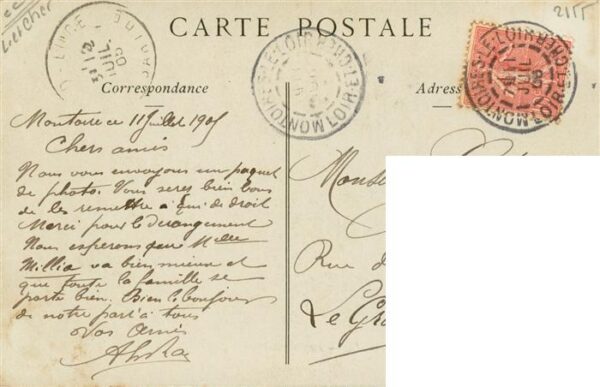 Loir et Cher
2155
CARTE POSTALE
Correspondance
Adress
MONTOIRE-S-LE-LOIR
LOIR-ET-CHER
MONTOIRE-S-LE-LOIR
LOIR-ET-CHER
Montoire ce 11 Juillet 1905
Chers amis
Nous vous envoyons un paquet
de photo. Vous serez bien bons
de les remettre à qui de droit
Merci pour le dérangement
Nous esperons que Melle
Millia va bien mieux et
que toute la famille se
porte bien. Bien le bonjour
de notre part à tous
Vos Amis
Monsi
Rue d
Le Gr